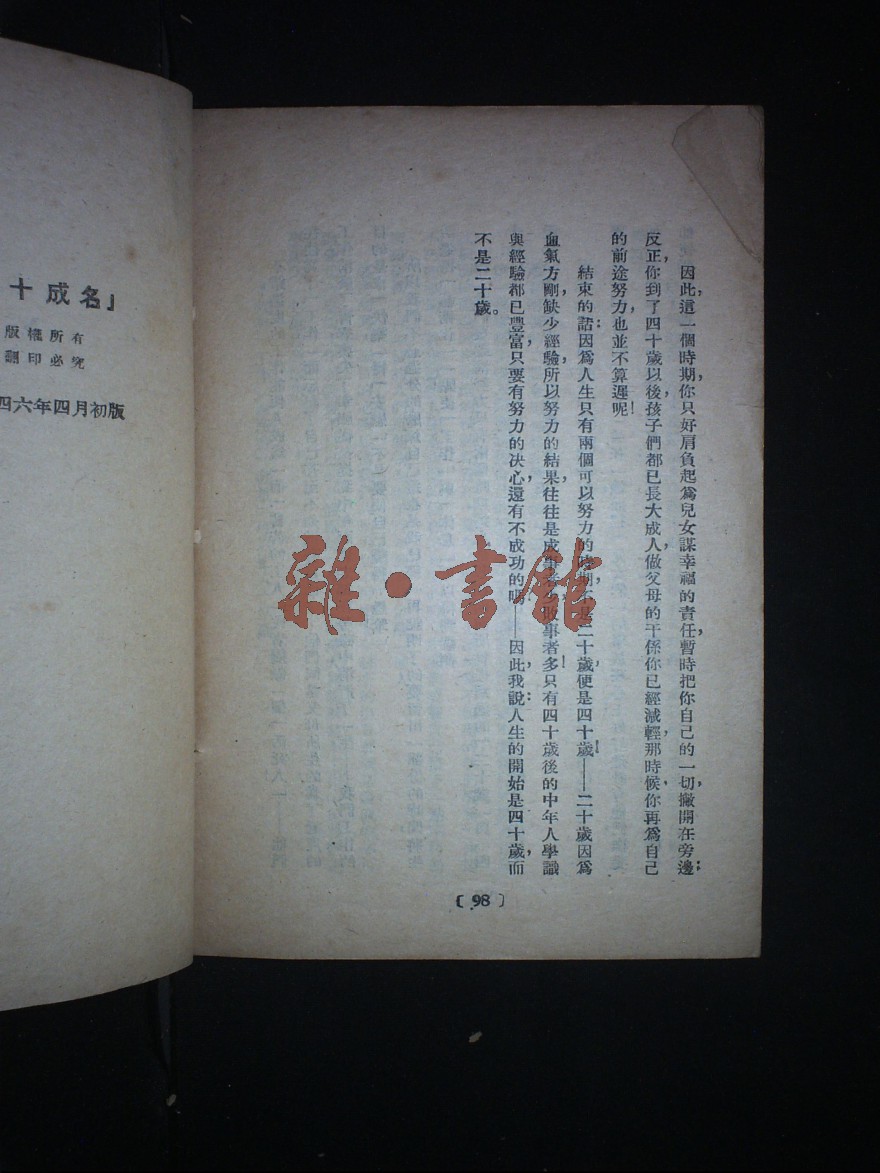 因此，這一個時期，你只好肩負起爲兒女謀幸福的責任，暫時把你自己的一切，撇開在旁邊；
反正，你到了四十歲以後，孩子們都已長大成人，做父母的干係，你已經減輕，那時候，你再爲自己
的前途努力，也並不算遲呢！
結束的話：因爲人生只有兩個可以努力的時期，不是二十歲，便是四十歲！——二十歲因爲
血氣方剛，缺少經驗，所以努力的結果，往往是成事者少，敗事者多！只有四十歲後的中年人，學識
與經驗都已豐富，只要有努力的決心，還有不成功的嗎？——因此，我說：人生的開始是四十歲，而
不是二十歲。
〔98〕
十成名」
版權所有
翻印必究
四六年四月初版
雜·書館